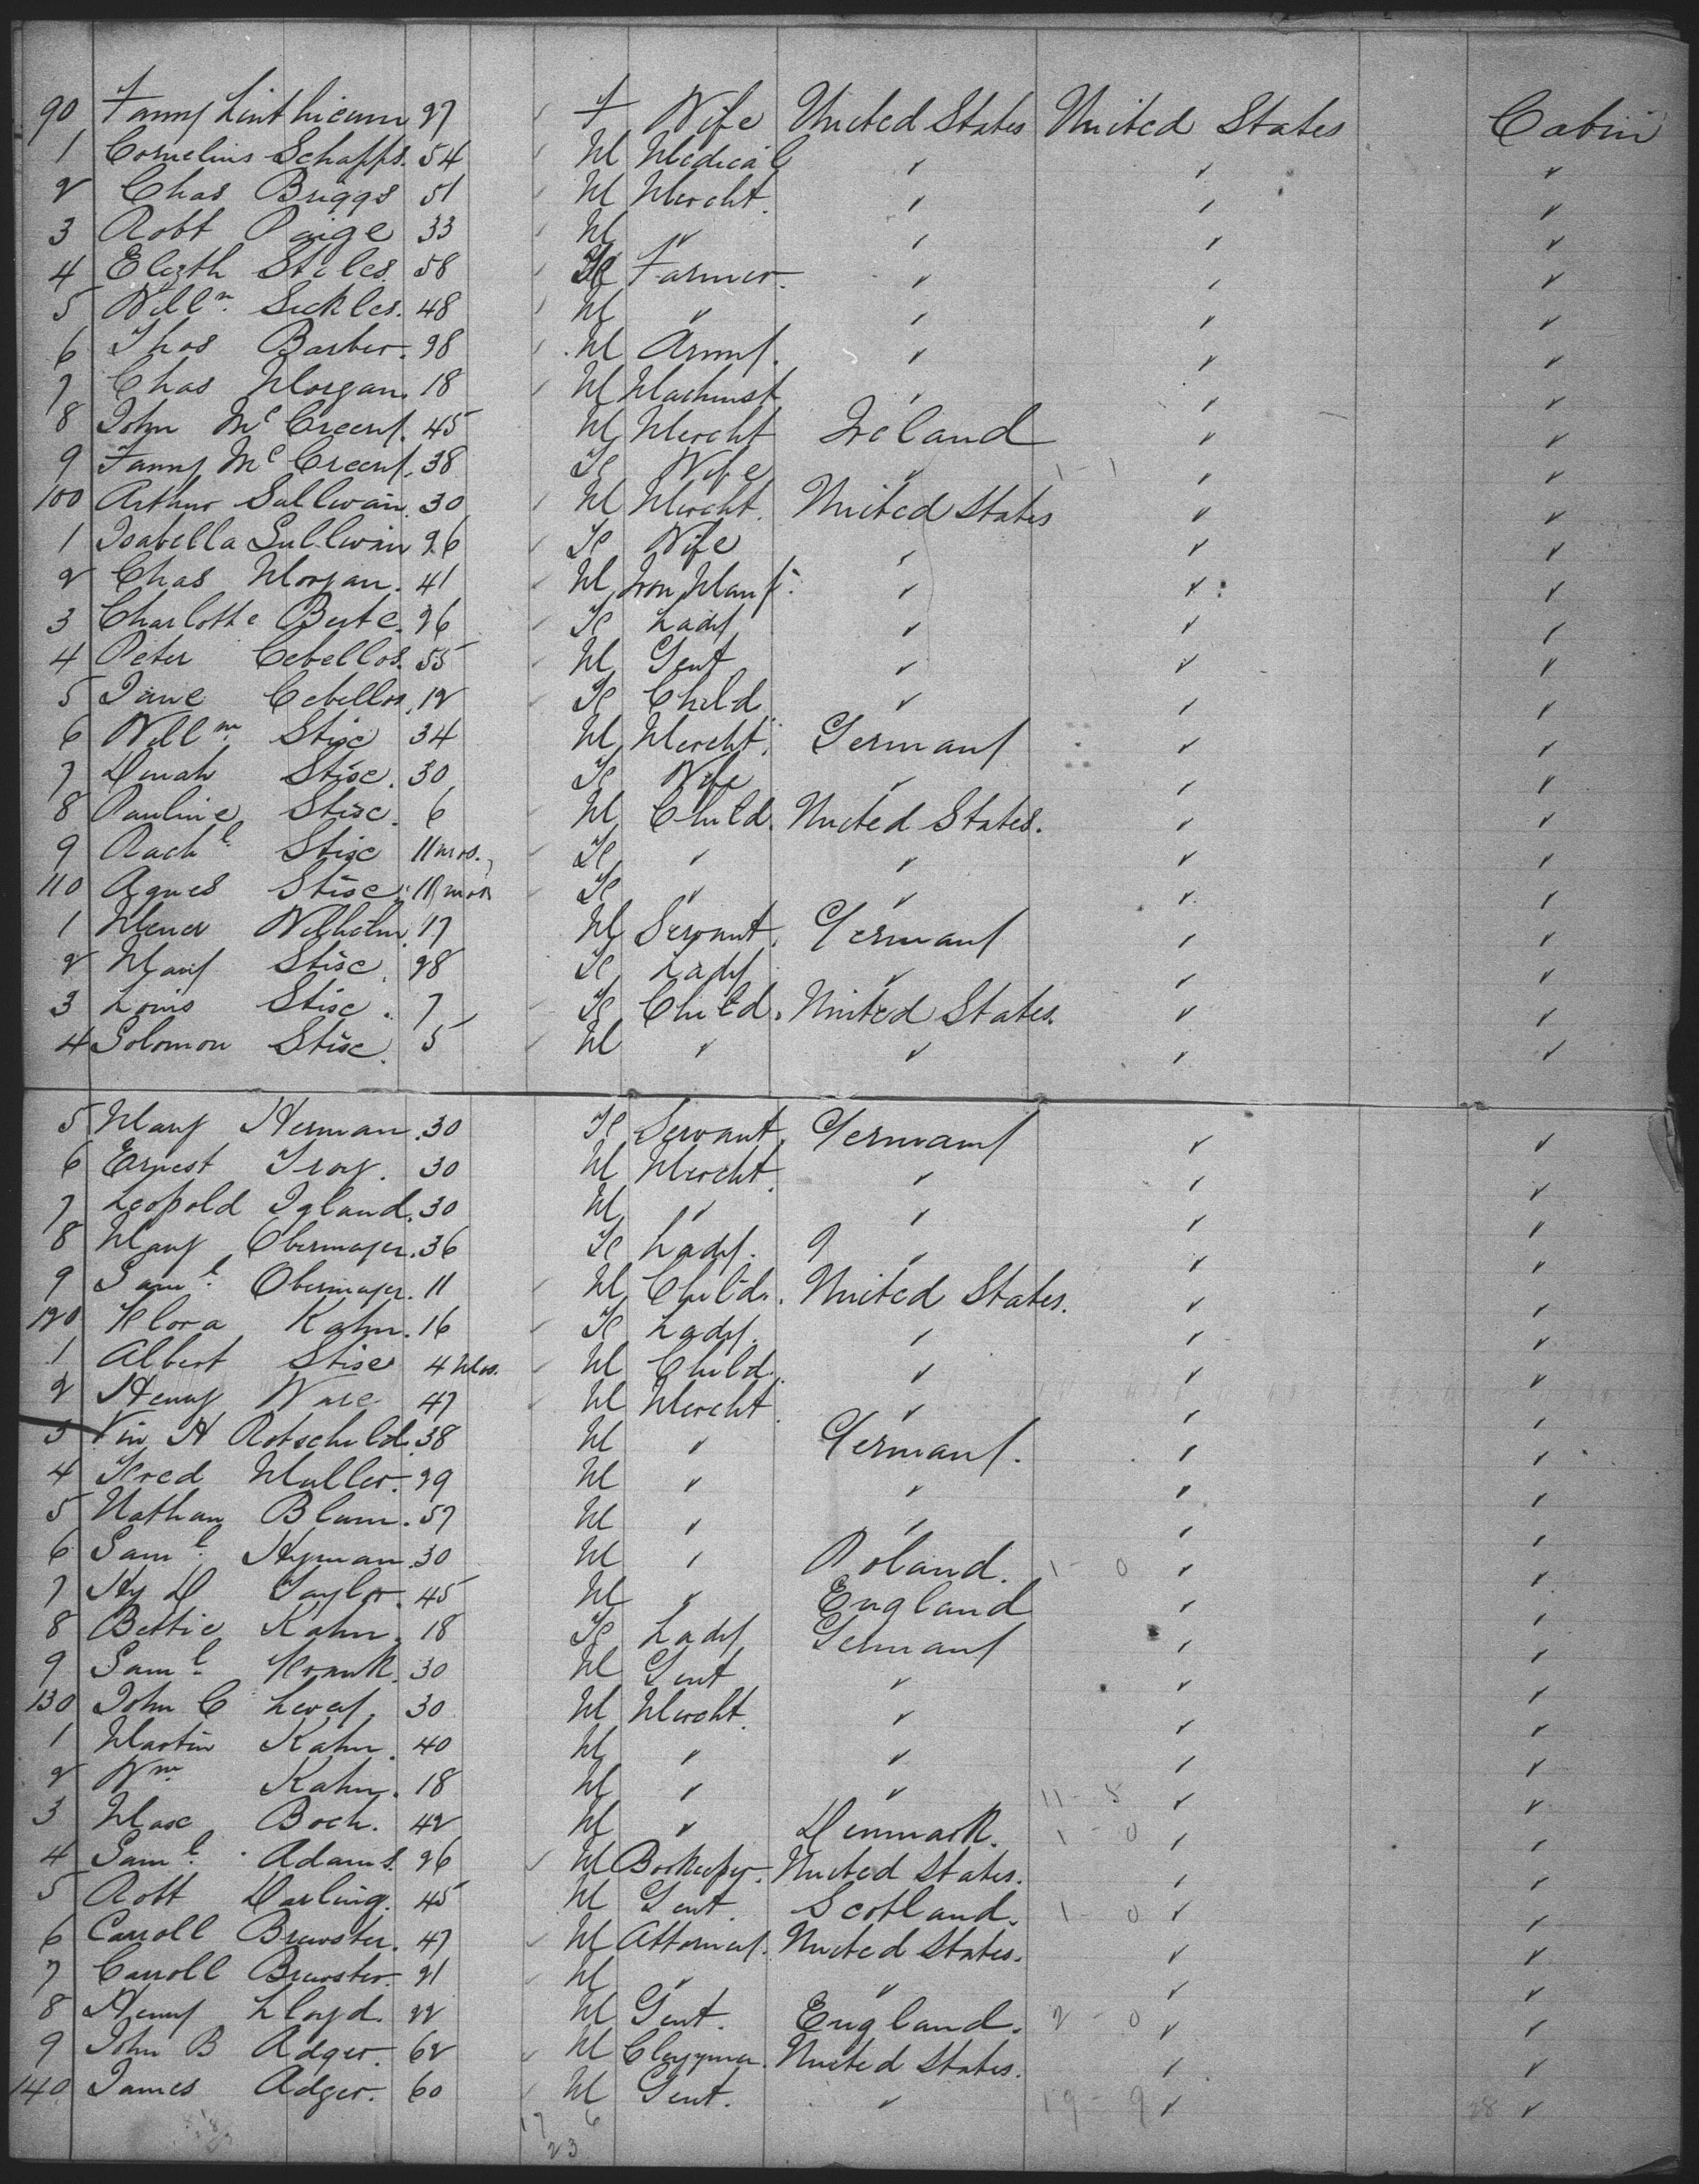 90 Fanny Linthicum 27 ✓ F Wife United States United States Cabin
1 Cornelius Schapps. 54 ✓ M Medical ✓ ✓ ✓
2 Chas Briggs 51 ✓ M Mercht. ✓ ✓ ✓
3 Robt Paige 33 ✓ M ✓ ✓ ✓ ✓
4 Elizth Stiles. 58 ✓ Farmer. ✓ ✓ ✓
5 Willm. Sickles. 48 ✓ M ✓ ✓ ✓ ✓
6 Thos Barber. 28 ✓ M Army. ✓ ✓ ✓
7 Chas Morgan. 18 ✓ M Machinist ✓ ✓ ✓
8 John Mc Creery. 45 M Mercht Ireland ✓ ✓
9 Fanny Mc Creery. 38 F Wife ✓ 1-1 ✓ ✓
100 Arthur Sullivan. 30 ✓ M Mercht. United States ✓ ✓
1 Isabella Sullivan 26 ✓ F Wife ✓ ✓ ✓
2 Chas Morgan. 41 ✓ M Iron Manf. ✓ ✓ ✓
3 Charlotte 26 ✓ F Lady ✓ ✓ ✓
4 Peter Cebellos. 55 ✓ M Gent ✓ ✓ ✓
5 Jane Cebellos. 12 ✓ F Child ✓ ✓ ✓
6 Willm. Stise 34 M Mercht. Germany ✓ ✓
7 Dinah Stise. 30 F Wife ✓ ✓ ✓
8 Pauline Stise. 6 ✓ M Child. United States. ✓ ✓
9 Rachl. Stise 11 mos. ✓ F ✓ ✓ ✓ ✓
110 Agnes Stise. 11 mos ✓ F ✓ ✓ ✓ ✓
1 Wilhelm. 17 M Servant. Germany ✓ ✓
2 Mary Stise. 28 F Lady ✓ ✓ ✓
3 Louis Stise. 7 ✓ F Child. United States. ✓ ✓
4 Solomon Stise. 5 ✓ M ✓ ✓ ✓ ✓
5 Mary Herman. 30 F Servant. Germany ✓ ✓
6 Ernest Troy. 30 M Mercht. ✓ ✓ ✓
7 Leopold Igland. 30 M ✓ ✓ ✓ ✓
8 Mary Obermayer. 36 F Lady. 9 ✓ ✓ ✓
9 Saml. Obermayer. 11 ✓ M Child. United States. ✓ ✓
120 Flora Kahn. 16 ✓ F Lady. ✓ ✓ ✓
1 Albert Stise 4 Mos. ✓ M Child. ✓ ✓ ✓
2 Henry Ware 47 M Mercht. ✓ ✓ ✓
3 Vin H Rotschild. 38 M ✓ Germany. ✓ ✓
4 Fred Muller. 29 M ✓ ✓ ✓ ✓
5 Nathan Blum. 57 M ✓ ✓ ✓ ✓
6 Saml. Hyman. 30 M ✓ Poland. 1-0 ✓ ✓
7 Hy D Taylor. 45 M ✓ England ✓ ✓
8 Bettie Kahn. 18 F Lady Germany ✓ ✓
9 Saml. Frank. 30 M Gent ✓ ✓ ✓
130 John C Levey. 30 M Mercht. ✓ ✓ ✓
1 Martin Kahn. 40 M ✓ ✓ ✓ ✓
2 Wm. Kahn. 18 M ✓ ✓ 11-5 ✓ ✓
3 Max Boch. 42 M ✓ Denmark. 1-0 ✓ ✓
4 Saml. Adams. 26 ✓ M Bookeeper. United States. ✓ ✓
5 Robt Darling. 45 M Gent. Scotland. 1-0 ✓ ✓
6 Carroll Brewster. 47 ✓ M Attorney. United States. ✓ ✓
7 Carroll Brewster. 21 ✓ M ✓ ✓ ✓ ✓
8 Henry Lloyd. 22 M Gent. England. 2-0 ✓ ✓
9 John B Adger. 62 ✓ M Clergyman. United States. ✓ ✓
140 James Adger. 60 ✓ M Gent. ✓ 19-9 ✓ 28 ✓
17 6
23